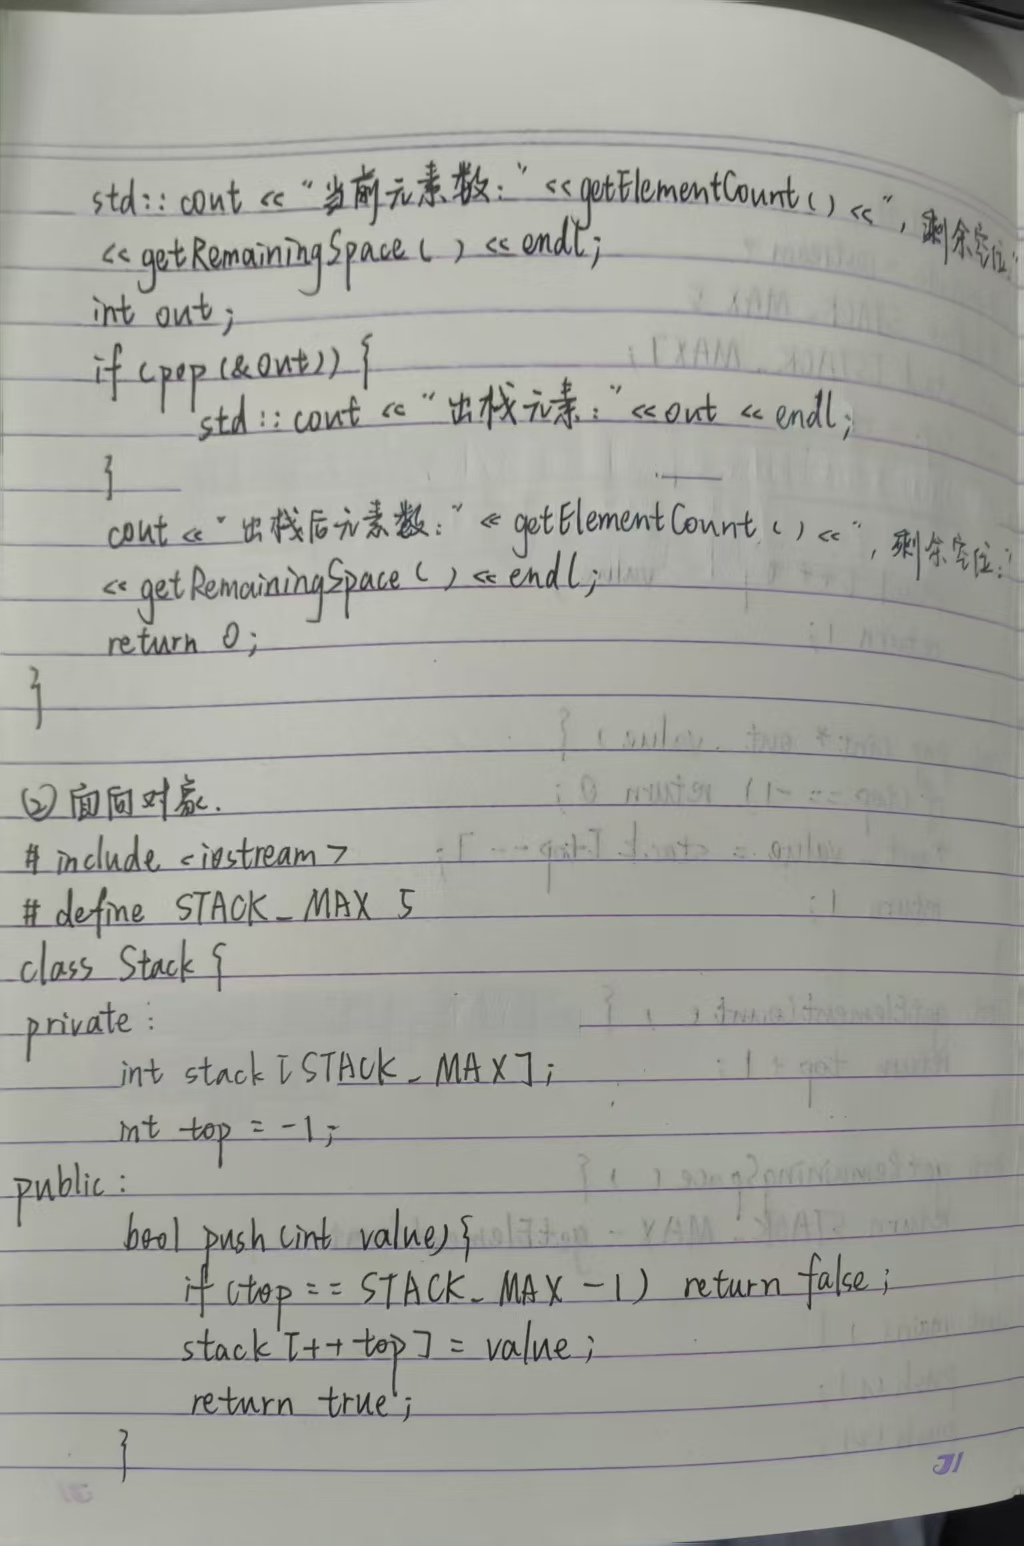 std::cout << "当前元素数:" << getElementCount() << ", 剩余空位:"
<< getRemainingSpace() << endl;
int out;
if (pop(&out)) {
std::cout << "出栈元素:" << out << endl;
}
cout << "出栈后元素数:" << getElementCount() << ", 剩余空位:"
<< getRemainingSpace() << endl;
return 0;
}
(2) 面向对象.
# include <iostream>
# define STACK_MAX 5
class Stack {
private:
int stack[STACK_MAX];
int top = -1;
public:
bool push(int value){
if (top == STACK_MAX - 1) return false;
stack[++top] = value;
return true;
}